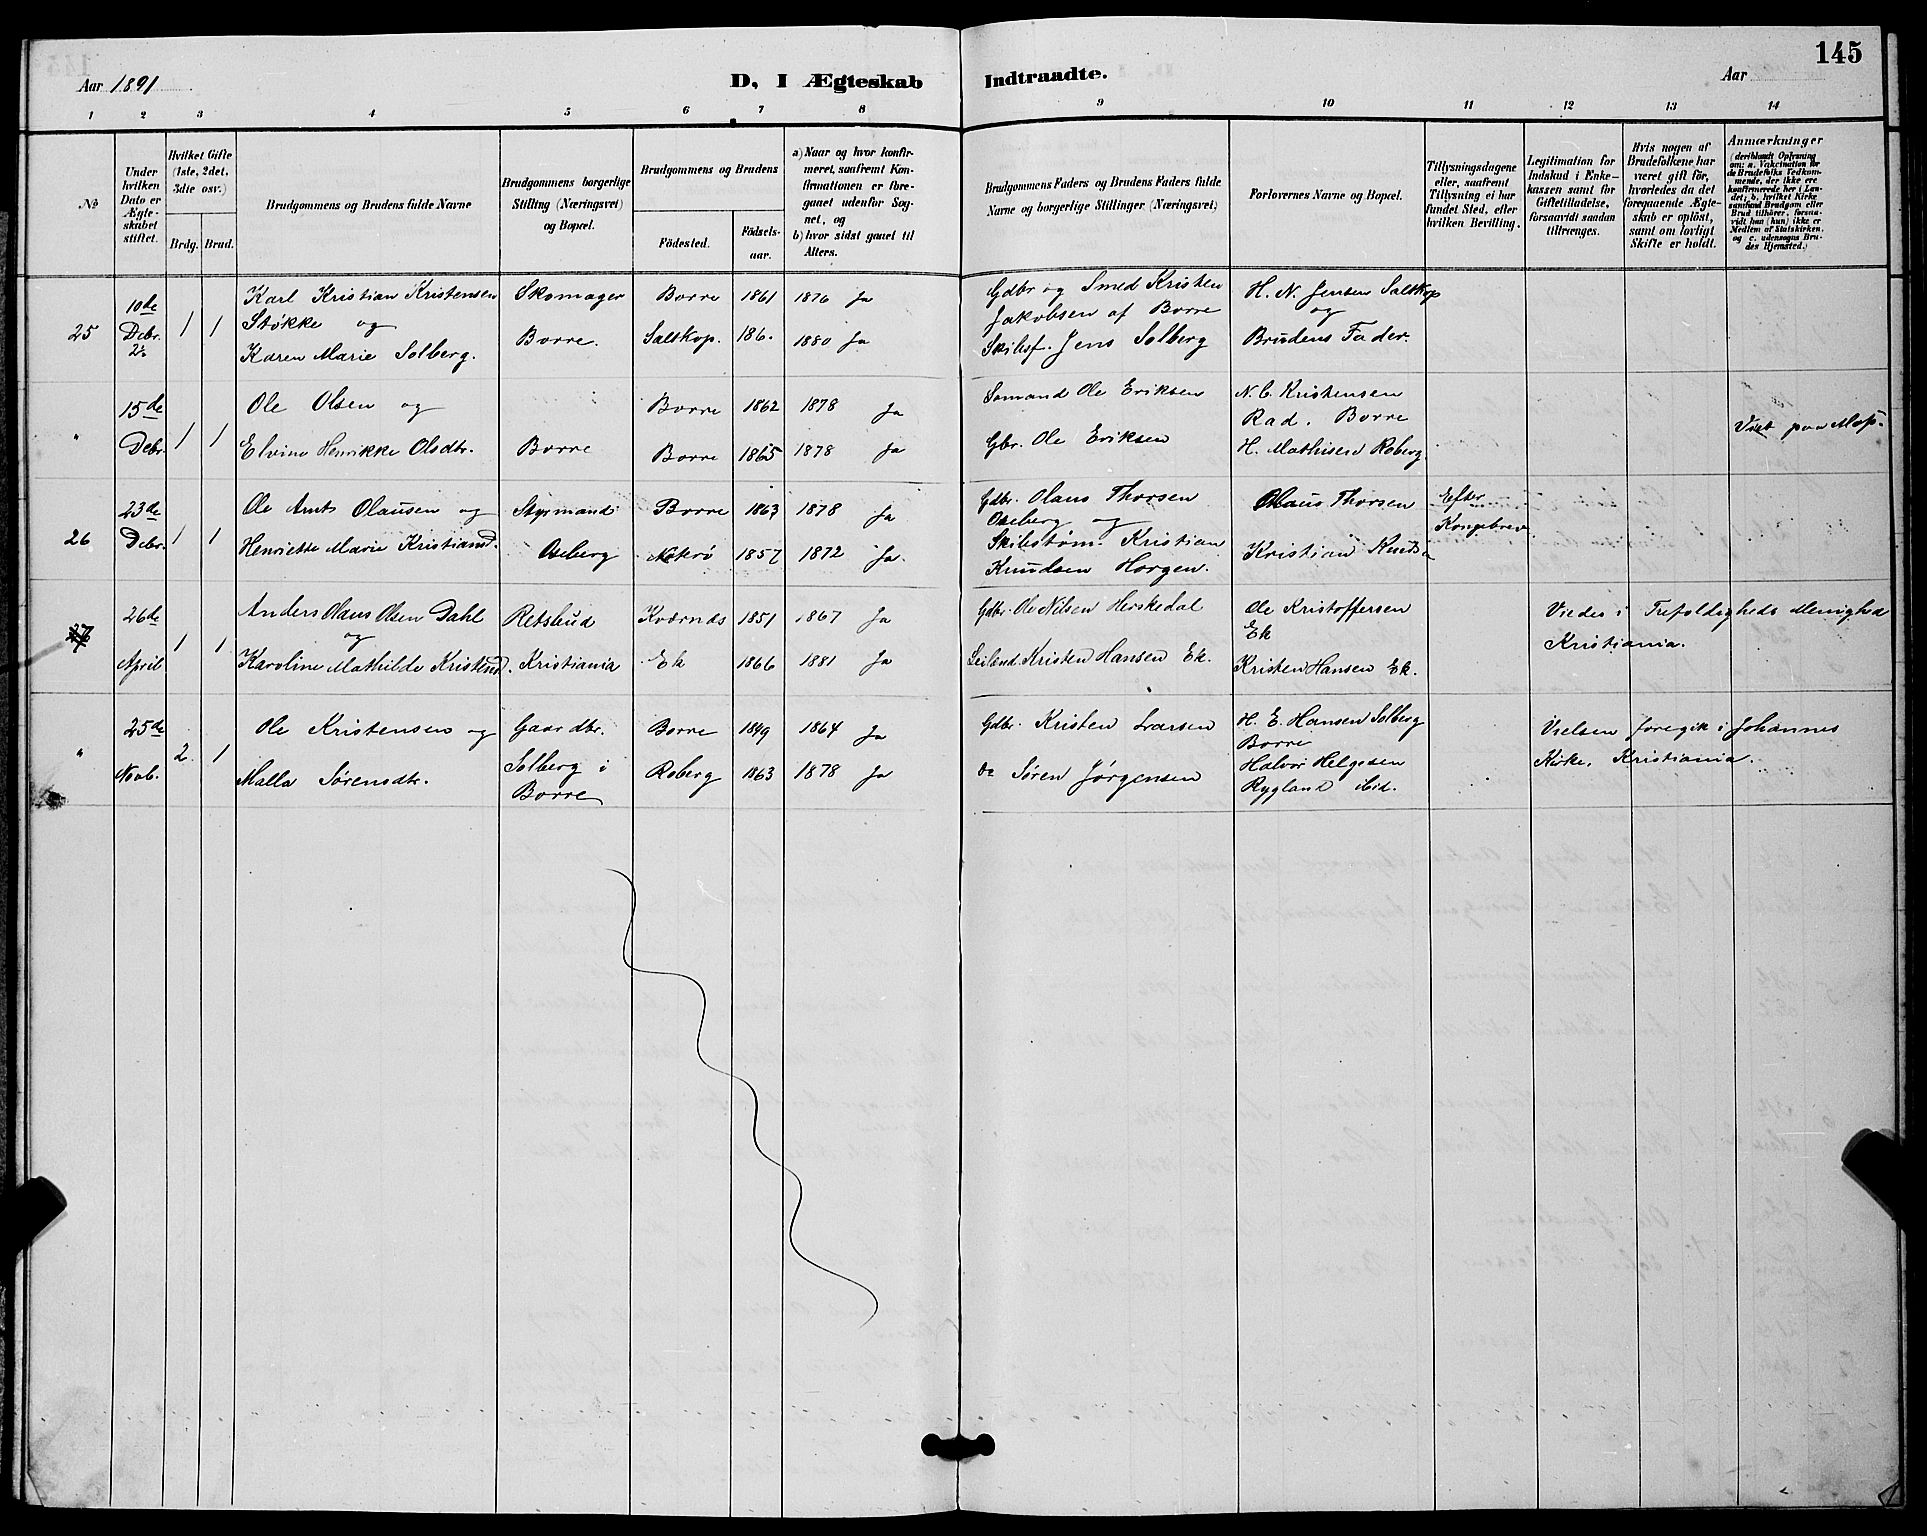 145
Aar 1891
D, I Ægteskab Indtraadte.
Aar
1 2 3 4 5 6 7 8 9 10 11 12 13 14
No
Under
hvilken
Dato er
Ægte-
skabet
stiftet.
Hvilket Gifte
(1ste, 2det,
3die osv.)
Brdg. Brud.
Brudgommens og Brudens fulde Navne
Brudgommens borgerlige
Stilling (Næringsvei)
og Bopæl.
Brudgommens og Brudens
Fødested.
Fødsels-
aar.
a) Naar og hvor konfir-
meret, saafremt Kon-
firmationen er fore-
gaaet udenfor Sog-
net, og
b) hvor sidst gaaet til
Alters.
Brudgommens Faders og Brudens Faders fulde
Navne og borgerlige Stillinger (Næringsvei)
Forlovernes Navne og Bopæl.
Tillysningsdagene
eller, saafremt
Tillysning ei har
fundet Sted, efter
hvilken Bevilling.
Legitimation for
Indskud i Enke-
kassen samt for
Giftetilladelse,
forsaavidt saadan
tiltrænges.
Hvis nogen af
Brudefolkene har
været gift før,
hvorledes da det
foregaaende Ægte-
skab er opløst,
samt om lovligt
Skifte er holdt.
Anmærkninger
(deriblandt Oplysning
om: a. Vakcination for
de Brudefolks Vedkom-
mende, der ikke ere
konfirmerede her i Lan-
det; b. hvilket Kirke
samfund Brudgom eller
Brud tilhører, forsaa-
vidt han (hun) ikke er
Medlem af Statskirken,
og c. udensogns Bru-
des Hjemsted.)
25
10de
Debr.
1 1
Karl Kristian Kristensen
Støkke og
Karen Marie Solberg.
Skomager
Borre.
Borre 1861 1876 Ja
Saltkop. 186. 1880 Ja
Gdbr og Smed Kristen
Jakobsen af Borre
Skibsf. Jens Solberg
H. N. Jensen Saltkop
og
Brudens Fader.
"
15de
Debr.
1 1
Ole Olsen og
Elvine Henrikke Olsdtr.
Borre
Borre 1862 1878 Ja
Borre 1865 1878 Ja
Sømand Ole Eriksen
Gbr. Ole Eriksen
N. C. Kristensen
Rad. Borre
H. Mathisen Roberg.
Viet paa
26
23de
Debr.
1 1
Ole Ants Olausen og
Henriette Marie Kristiansd.
Styrmand
Oseberg
Borre 1863 1878 Ja
Nøtrø 1857 1872 Ja.
Gdbr. Olaus Thorsen
Oseberg og
Skibstøm. Kristian
Knudsen Horgen.
Olaus Thorsen
Kristian Knuds
Efter
Kongebrev.
27
26de
April
1 1
Anders Olaus Olsen Dahl
og
Karoline Mathilde Kristensd.
Retsbud
Kristiania
Kværnæs 1851 1867 Ja
Ek 1866 1881 Ja
Gdbr. Ole Nilsen Herskedal
Leilend. Kristen Hansen Ek.
Ole Kristoffersen
Ek
Kristen Hansen Ek.
Viedes i Trefoldigheds Menighed
Kristiania.
"
25de
Novb.
2 1
Ole Kristensen og
Malla Sørensdtr.
Gaardbr.
Solberg i
Borre
Borre 1849 1864 Ja
Roberg 1863 1878 Ja
Gdbr. Kristen Larsen
Do Søren Jørgensen
H. E. Hansen Solberg
Borre
Halvor Helgesen
Rygland ibid.
Vielsen foregik i Johannes
Kirke, Kristiania.